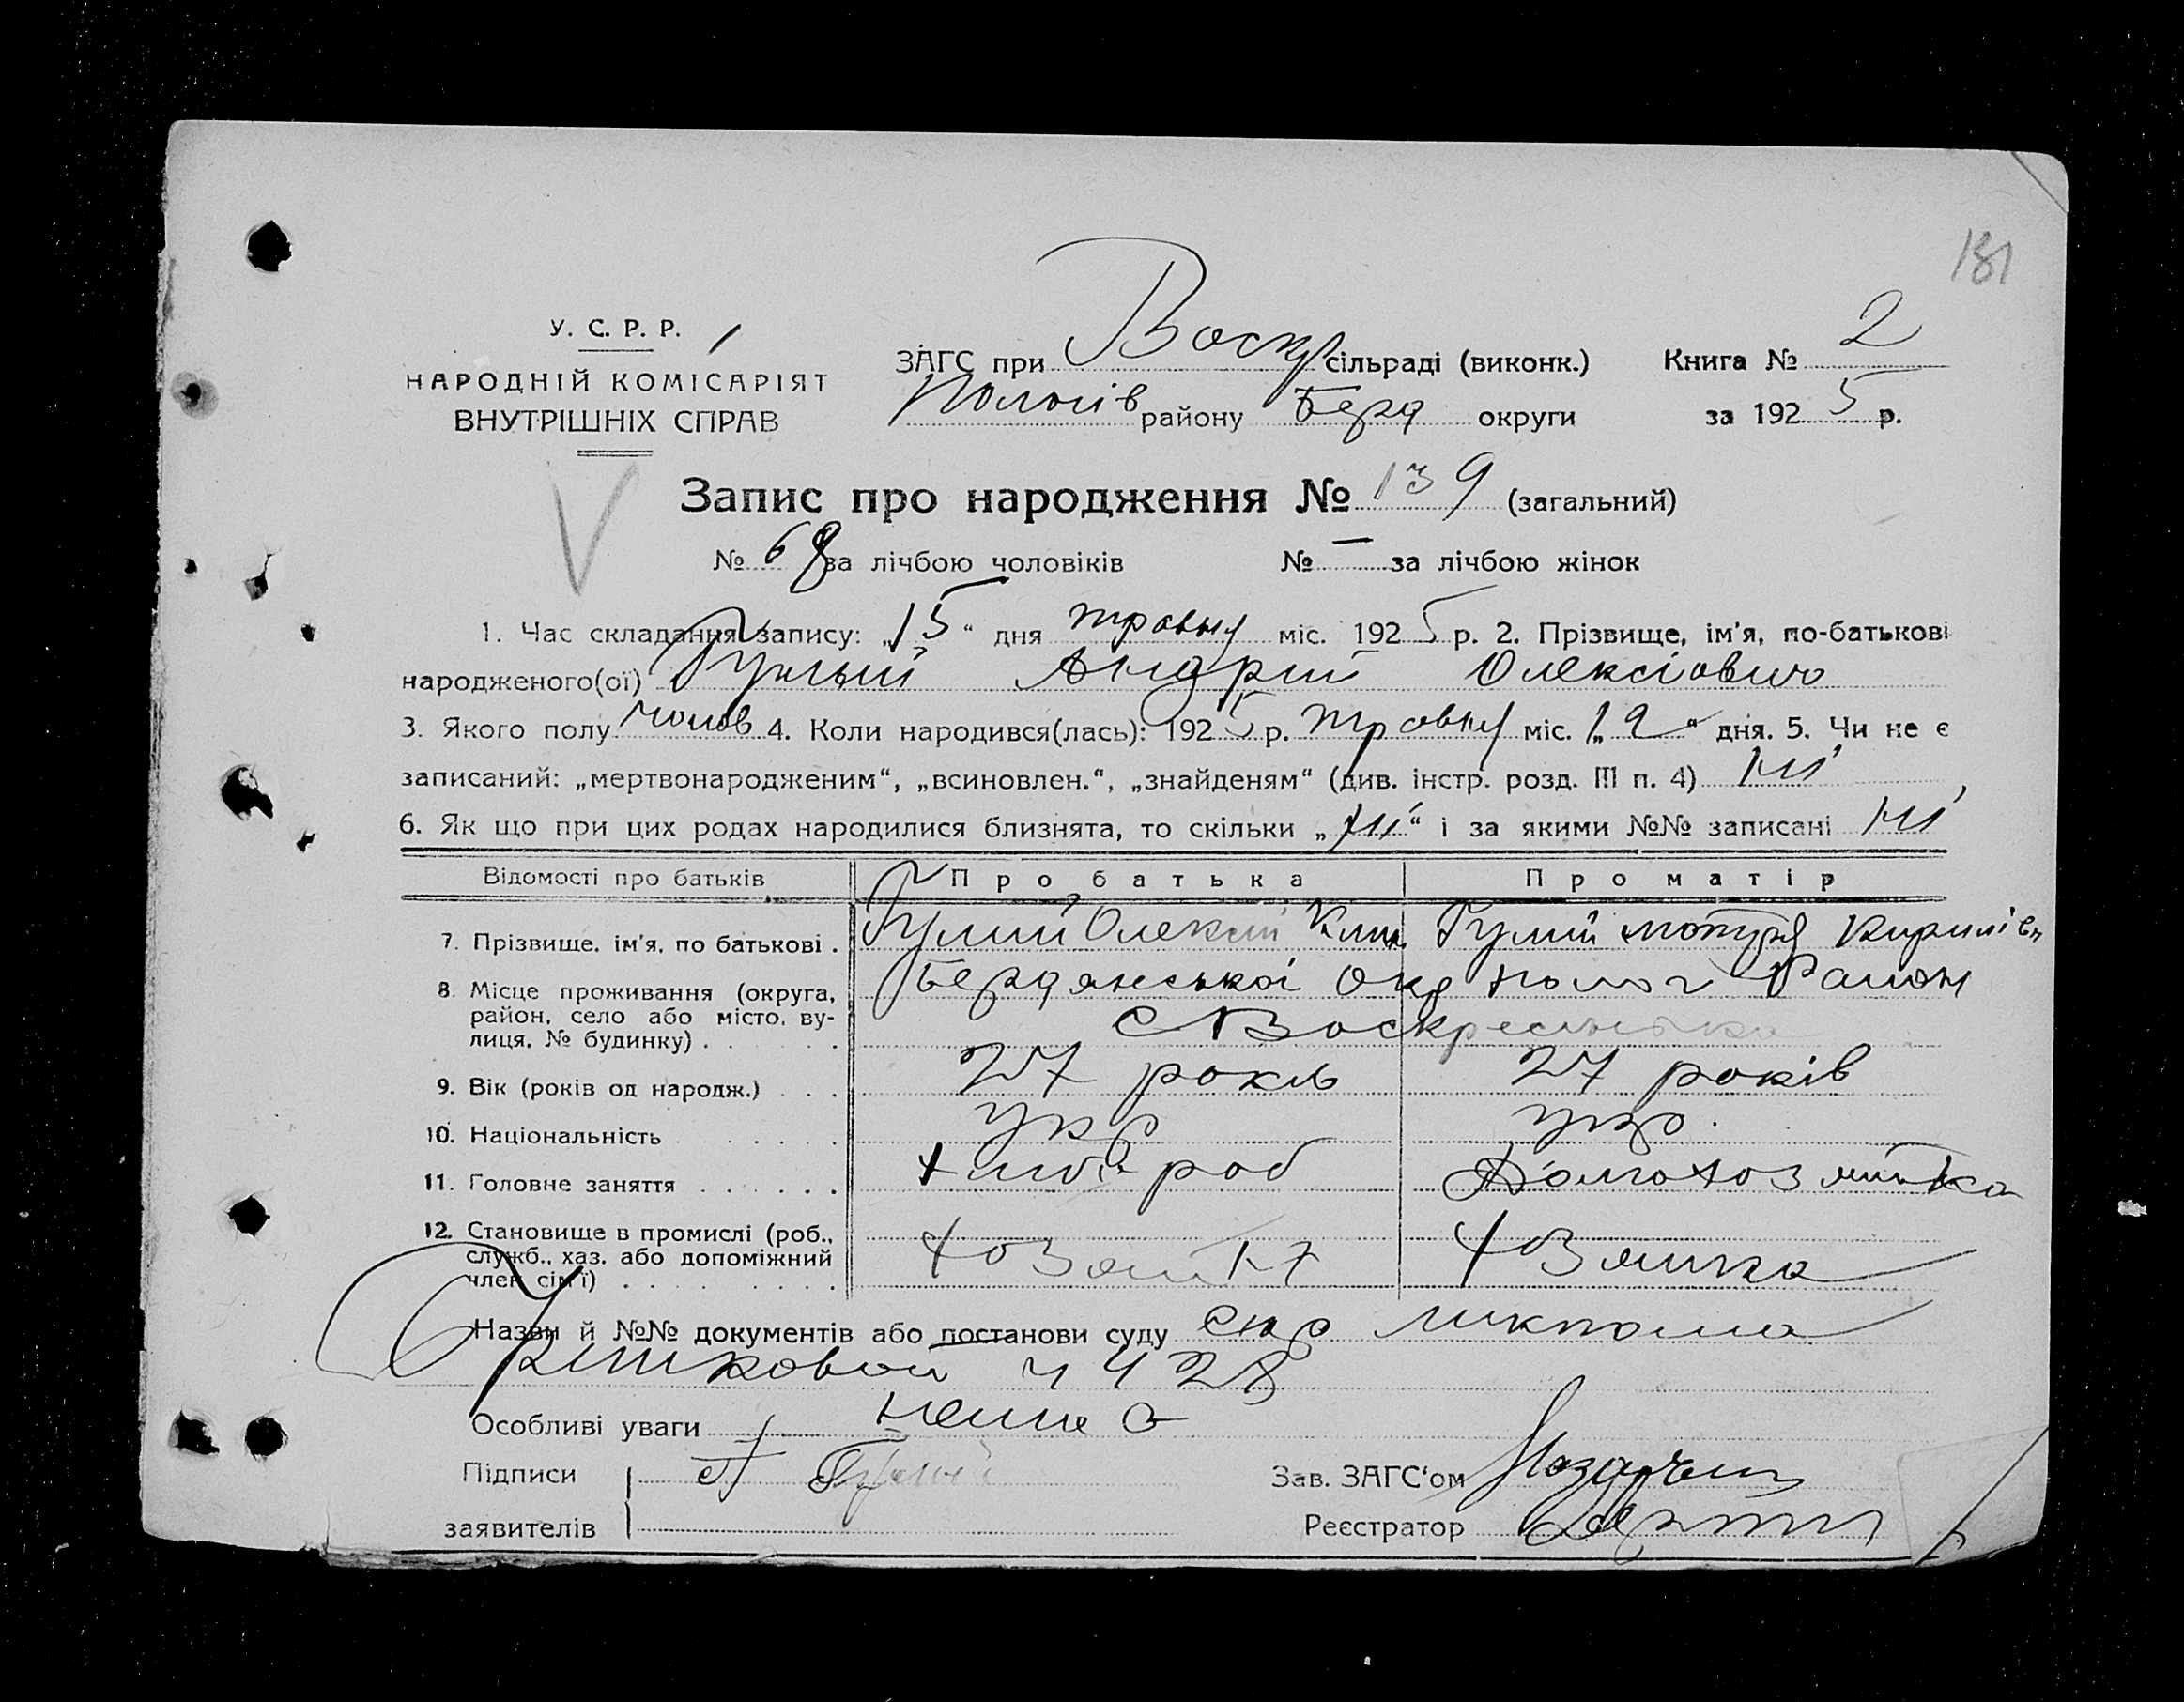 181
У. С. Р. Р.
НАРОДНІЙ КОМІСАРІЯТ
ВНУТРІШНІХ СПРАВ
ЗАГС при Воскр сільраді (виконк.) Книга № 2
Пологів району Берд округи за 1925 р.
Запис про народження № 139 (загальний)
№ 68 за лічбою чоловіків № — за лічбою жінок
1. Час складання запису: „15“ дня травня міс. 1925 р. 2. Прізвище, ім'я, по-батькові
народженого(ої) Андрій Олексіович
3. Якого полу чолов 4. Коли народився(лась): 1925 р. травня міс. „12“ дня. 5. Чи не є
записаний: „мертвонародженим“, „всиновлен.“, „знайденям“ (див. інстр. розд. III п. 4) ні
6. Як що при цих родах народилися близнята, то скільки „ні“ і за якими №№ записані ні
Відомості про батьків Про батька Про матір
7. Прізвище, ім'я, по батькові . Гулий Олексій Клим Гулий Мотря Кирилівн
8. Місце проживання (округа, Бердянської Окр Полог Район
район, село або місто, ву- с Воскресенька
лиця, № будинку) . . . . .
9. Вік (років од народж.) . . . 27 років 27 років
10. Національність . . . . . укр укр.
11. Головне заняття . . . . . . хлібороб Домохозяйка
12. Становище в промислі (роб.,
служб., хаз. або допоміжний хозяйка
член сім'ї) . . . . . . . .
Назви й №№ документів або постанови суду
28
Особливі уваги нема
Підписи Зав. ЗАГС'ом
заявителів Реєстратор